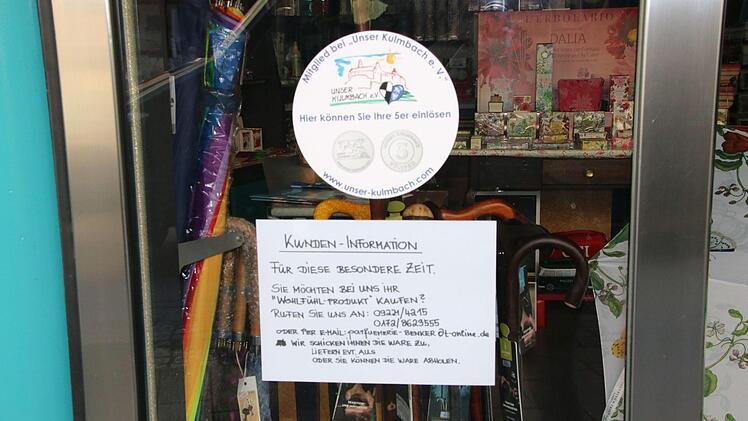 Mitglied bei „Unser Kulmbach e. V.“
UNSER
KULMBACH e.V.
Hier können Sie Ihre 5er einlösen
www.unser-kulmbach.com
L'ERBOLARIO
DALIA
KUNDEN-INFORMATION
FÜR DIESE BESONDERE ZEIT.
SIE MÖCHTEN BEI UNS IHR
"WOHLFÜHL-PRODUKT" KAUFEN?
RUFEN SIE UNS AN: 09221/4215
0172/8623555
ODER PER E-MAIL: parfuemerie-BENKER@t-online.de
WIR SCHICKEN IHNEN DIE WARE ZU,
LIEFERN EVT. AUS
ODER SIE KÖNNEN DIE WARE ABHOLEN.